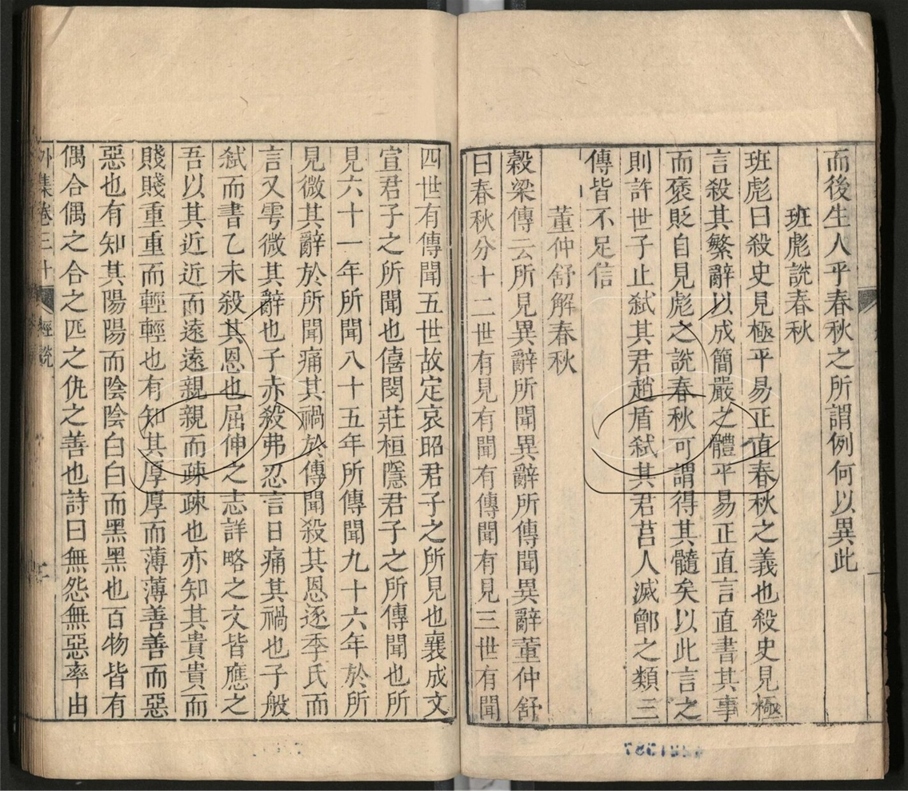 而後生人乎春秋之所謂例何以異此
班彪說春秋
班彪曰殺史見極平易正直春秋之義也殺史見極
言殺其繁辭以成簡嚴之體平易正直言直書其事
而褒貶自見彪之說春秋可謂得其髓矣以此言之
則許世子止弑其君趙盾弑其君莒人滅鄫之類三
傳皆不足信
董仲舒解春秋
穀梁傳云所見異辭所聞異辭所傳聞異辭董仲舒
曰春秋分十二世有見有聞有傳聞有見三世有聞
四世有傳聞五世故定哀昭君子之所見也襄成文
宣君子之所聞也僖閔莊桓隱君子之所傳聞也所
見六十一年所聞八十五年所傳聞九十六年於所
見微其辭於所聞痛其禍於傳聞殺其恩逐季氏而
言又雩微其辭也子赤殺弗忍言日痛其禍也子般
弑而書乙未殺其恩也屈伸之志詳略之文皆應之
吾以其近近而遠遠親親而疎疎也亦知其貴貴而
賤賤重重而輕輕也有知其厚厚而薄薄善善而惡
惡也有知其陽陽而陰陰白白而黑黑也百物皆有
偶合偶之合之匹之仇之善也詩曰無怨無惡率由
外集卷三十 經說